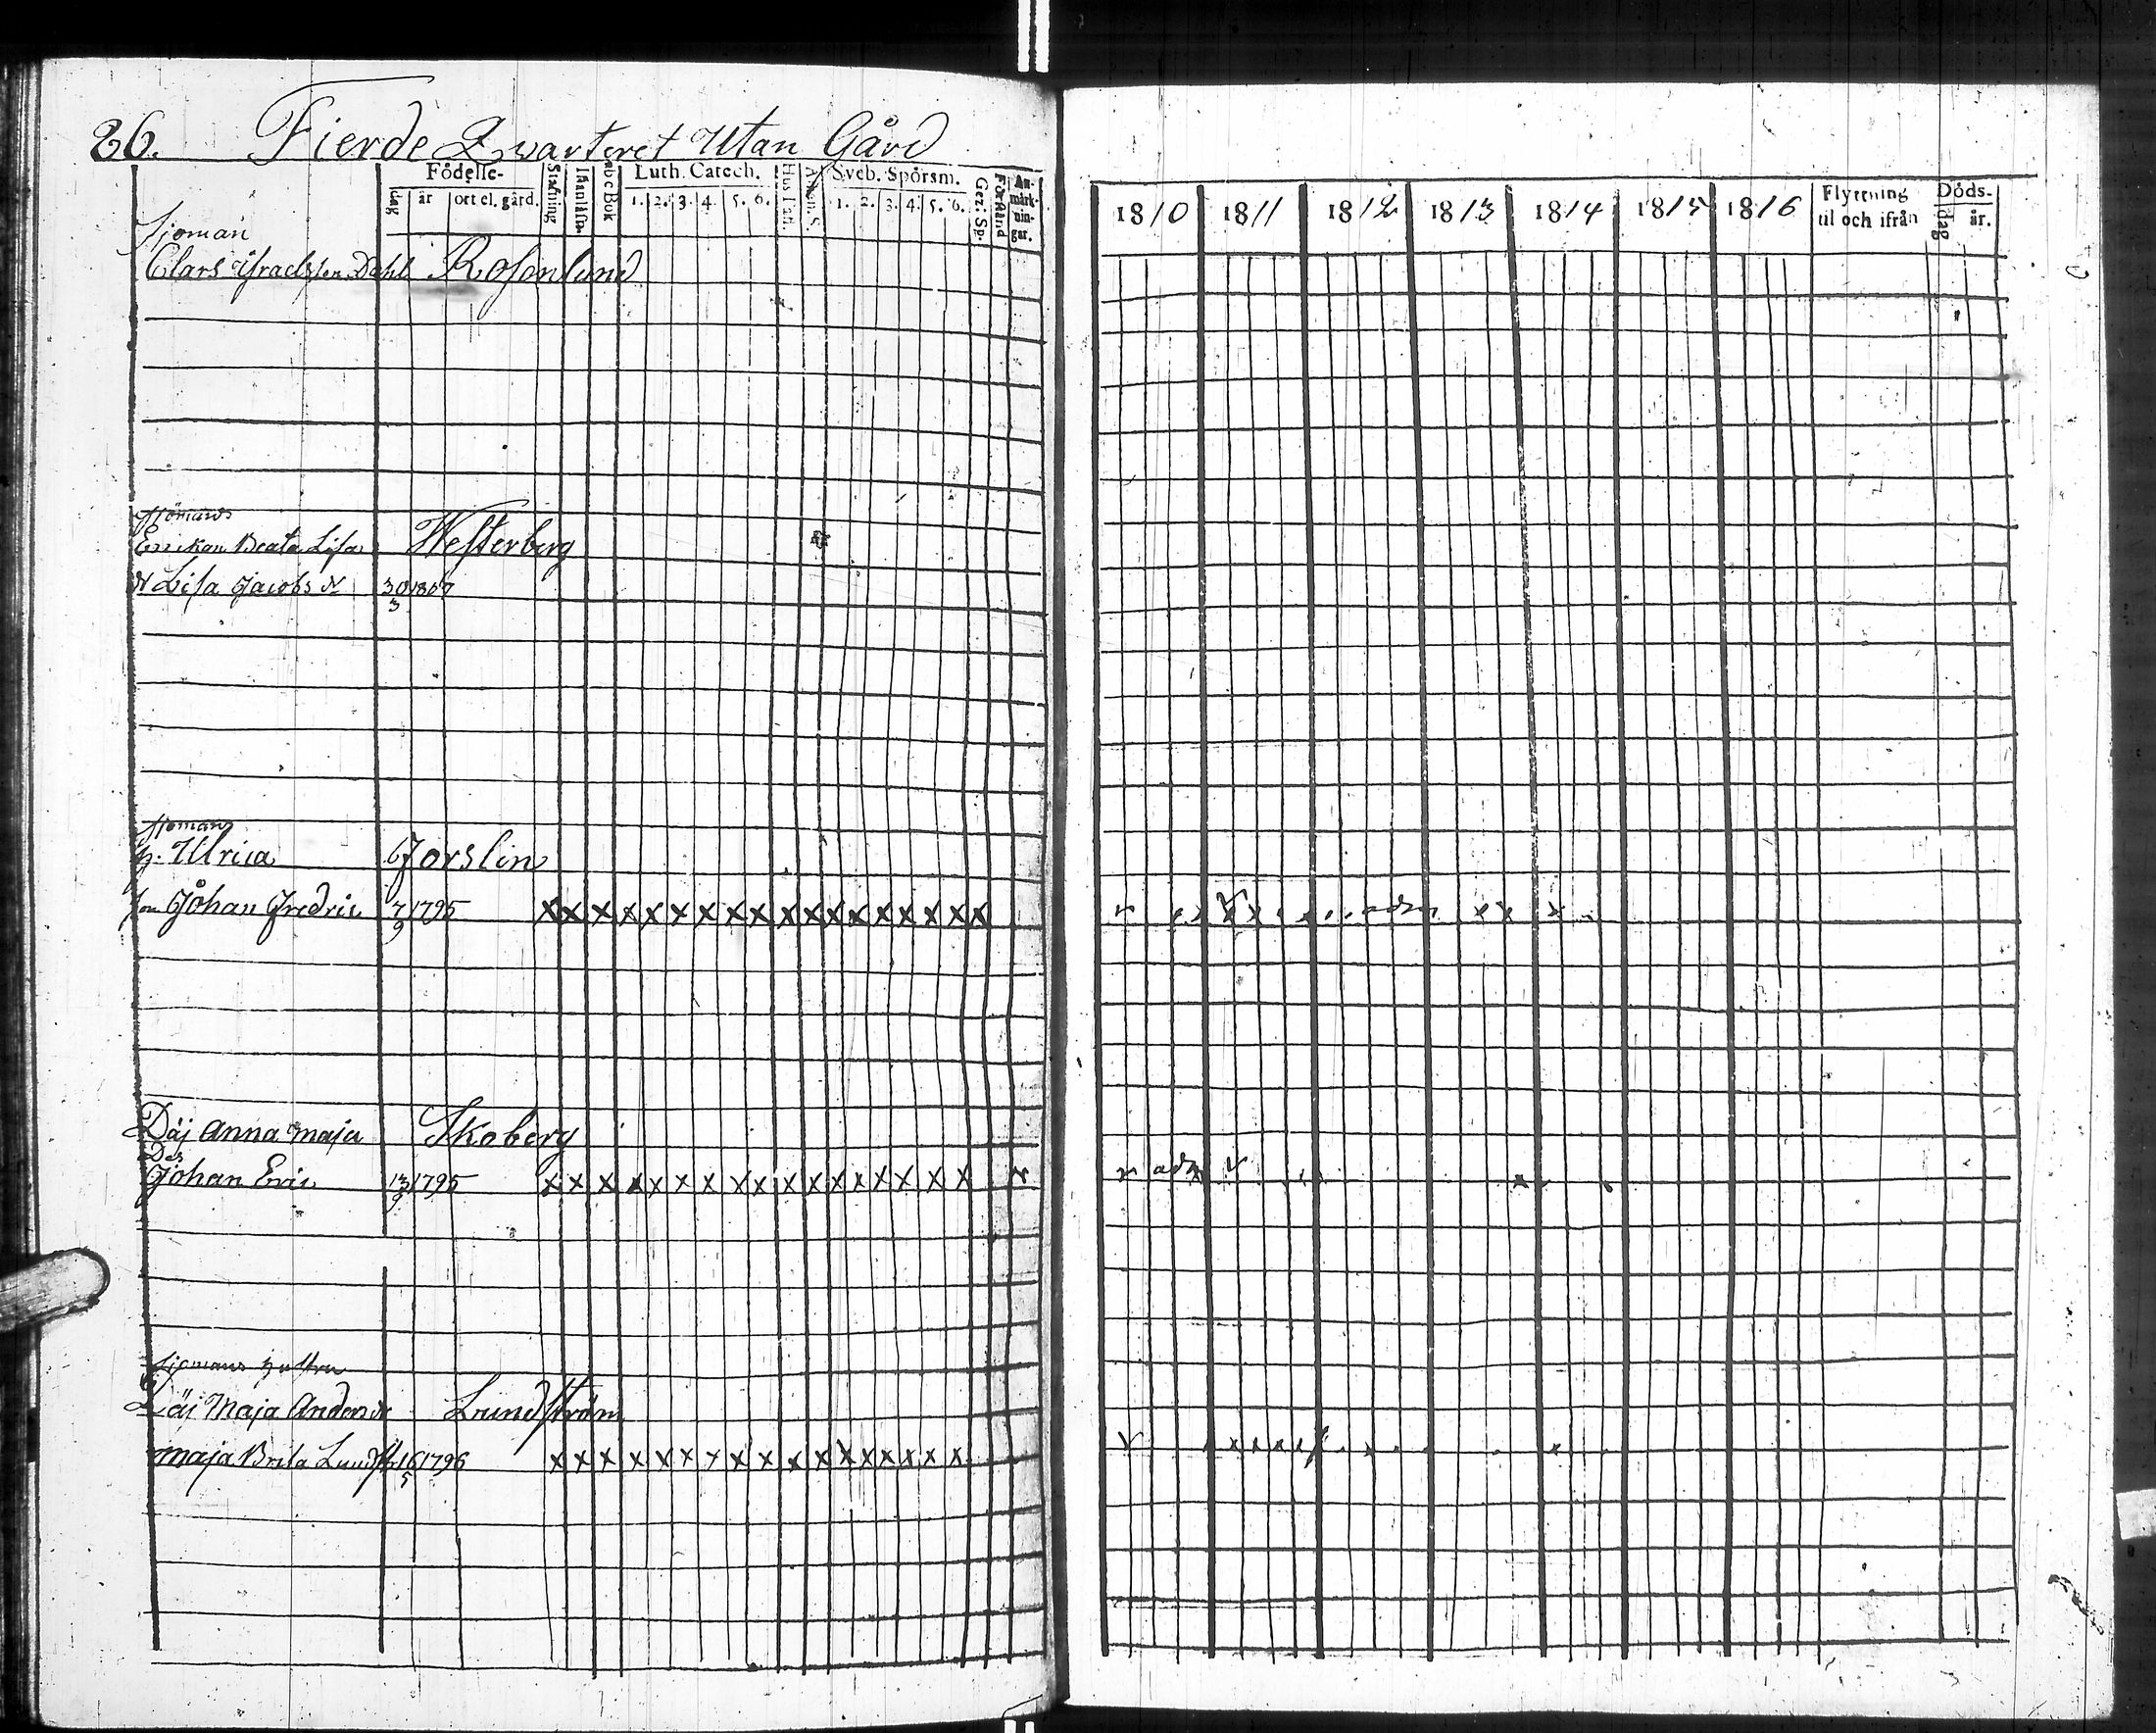 26. Fierde Qvarteret Utan Gård
Födelse- Stafning Innanläsn. Abc Bok Luth. Catech. Hus Tafl. Athan. S. Sveb. Spörsm. Gez: Sp. Förstånd An-märk-nin-gar.
dag år ort el. gård. 1. 2. 3. 4. 5. 6. 1. 2. 3. 4. 5. 6.
1810 1811 1812 1813 1814 1815 1816 Flyttning til och ifrån Döds- dag år.
Sjöman
Clars Israelsson Dahl Rosenlund
Sjömans
Enckan Beata Lisa Westerberg
Lisa Jacobs dr 30/3 1807
Sjömans
h. Ulrica Forslin
son Johan Fredric 7/9 1795 x x x x x x x x x x x x x x x x x x
Däj Anna Maja Skoberg
Des
Johan Eric 13/9 1795 x x x x x x x x x x x x x x x x x
Sjömans hustru
Däj Maja Anders dr Lundström
Maja Brita Lundstr 16/5 1796 x x x x x x x x x x x x x x x x x